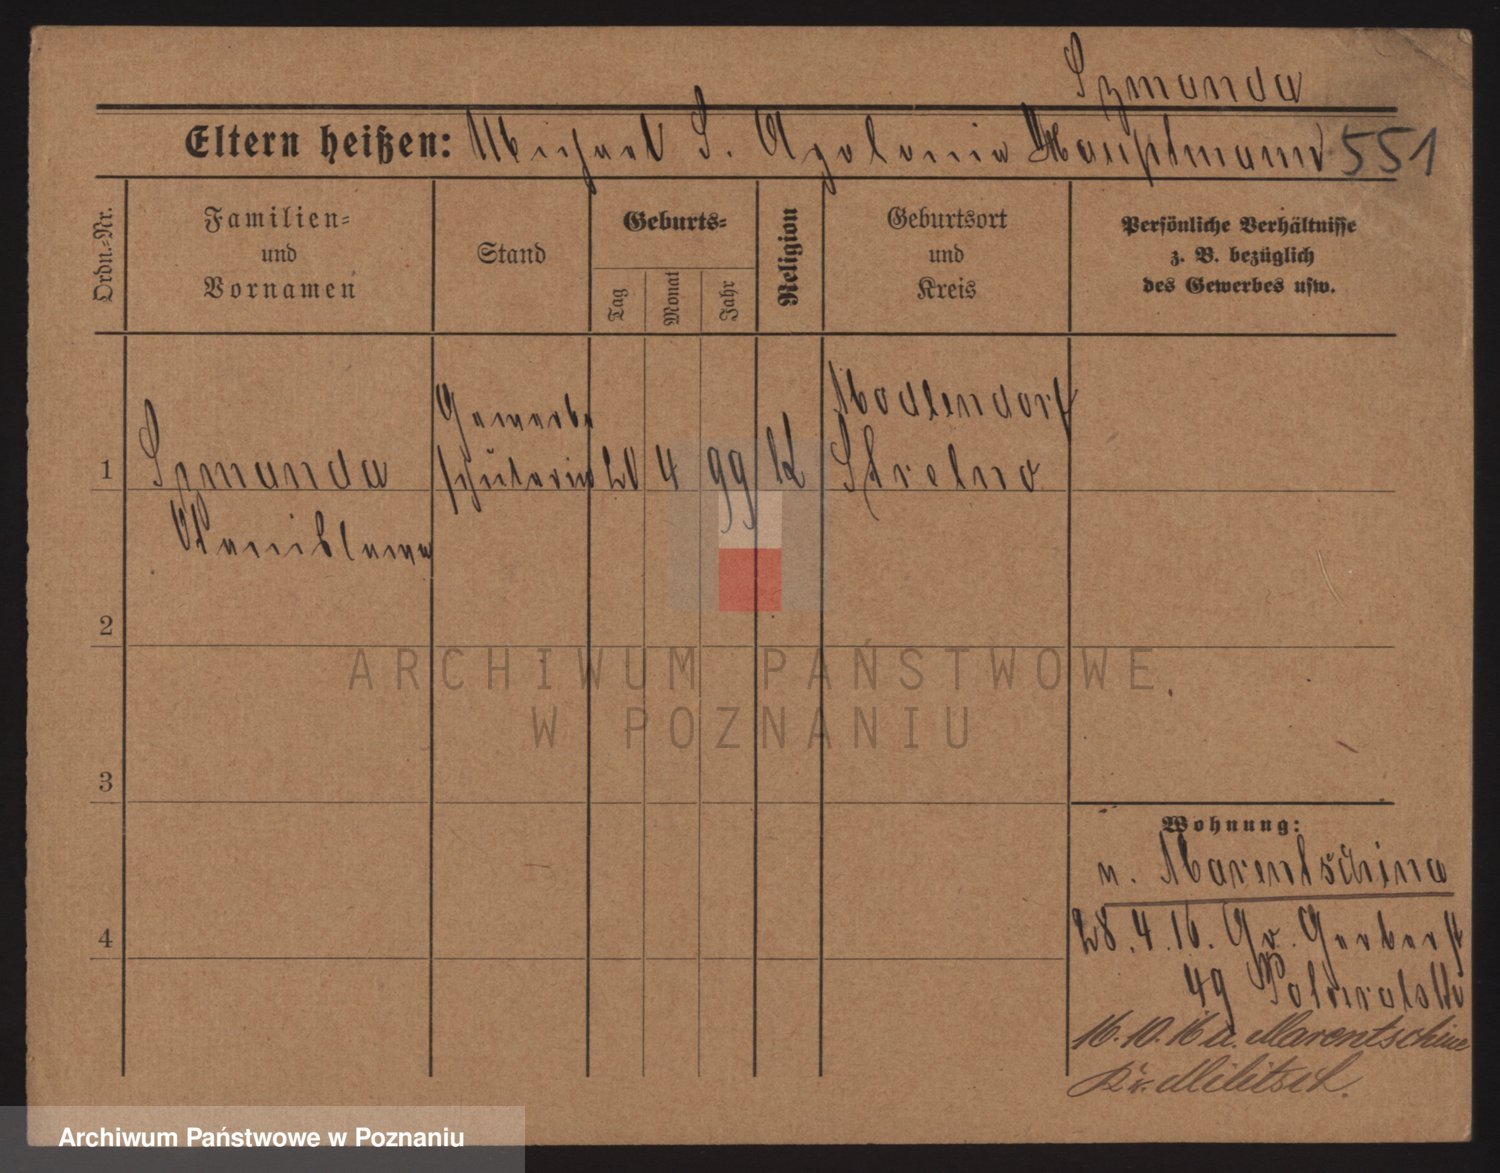 Szmanda
Eltern heißen: Michael S. Apolonia Hauptmann 551
Ordn.-Nr.
Familien-
und
Vornamen
Stand
Geburts-
Tag
Monat
Jahr
Religion
Geburtsort
und
Kreis
Persönliche Verhältnisse
z. B. bezüglich
des Gewerbes usw.
1
Szmanda
Stanislawa
Gewerbe
schülerin
20
4
99
K
Modlendorf
Strelno
2
3
4
Wohnung:
n. Marentschine
28.4.16. Gr. Gerberst
49
16.10.16 n. Marentschine
Kr. Militsch.
ARCHIWUM PAŃSTWOWE
W POZNANIU
Archiwum Państwowe w Poznaniu